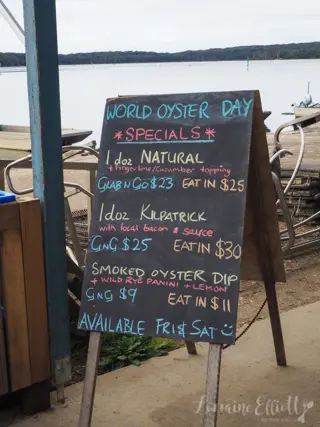 WORLD OYSTER DAY
*SPECIALS*
1 doz NATURAL
+ fingerlime/cucumber topping
GRAB N GO $23 EAT IN $25
1 doz KILPATRICK
with local bacon & sauce
GnG $25 EAT IN $30
SMOKED OYSTER DIP
+ WILD RYE PANINI + LEMON
GnG $9 EAT IN $11
AVAILABLE FRI & SAT
Lorraine Elliott